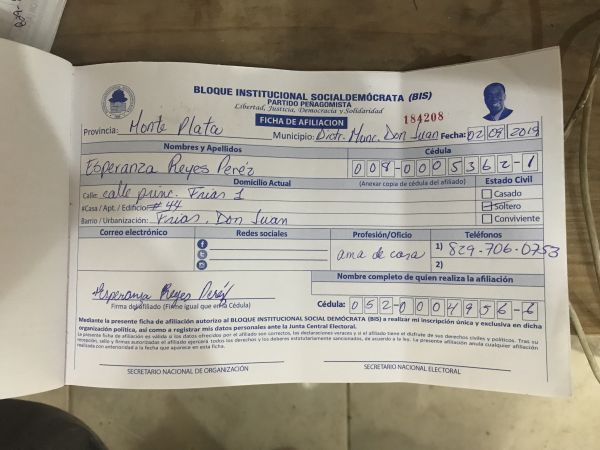 BLOQUE INSTITUCIONAL SOCIALDEMÓCRATA (BIS)
PARTIDO PEÑAGOMISTA
Libertad, Justicia, Democracia y Solidaridad
184208
FICHA DE AFILIACION
Provincia: Monte Plata Municipio: Distr. Munc. Don Juan Fecha: 02 09 2019
Nombres y Apellidos Cédula
Esperanza Reyes Peréz 008-0005362-1
Domicilio Actual (Anexar copia de cédula del afiliado) Estado Civil
Calle: calle princ. Frias 1 Casado
#Casa / Apt. / Edificio: # 44 Soltero
Barrio / Urbanización: Frias, Don Juan Conviviente
Correo electrónico Redes sociales Profesión/Oficio Teléfonos
ama de casa 1) 829-706-0753
2)
Nombre completo de quien realiza la afiliación
Esperanza Reyes Peréz
Firma del afiliado (Firme igual que en la Cédula) Cédula: 052-0004956-6
Mediante la presente ficha de afiliación autorizo al BLOQUE INSTITUCIONAL SOCIAL DEMÓCRATA (BIS) a realizar mi inscripción única y exclusiva en dicha
organización política, así como a registrar mis datos personales ante la Junta Central Electoral.
La presente ficha de afiliación es válida si los datos ofrecidos por el afiliado son correctos, las declaraciones veraces y si el afiliado tiene el disfrute de sus derechos civiles y políticos. Tras su
recepción, sello y firmas autorizadas el afiliado ejercerá todos los derechos y los deberes estatutariamente sancionados, de acuerdo a la ley. La presente afiliación anula cualquier afiliación
realizada con anterioridad a la fecha que aparece en esta ficha.
SECRETARIO NACIONAL DE ORGANIZACIÓN SECRETARIO NACIONAL ELECTORAL